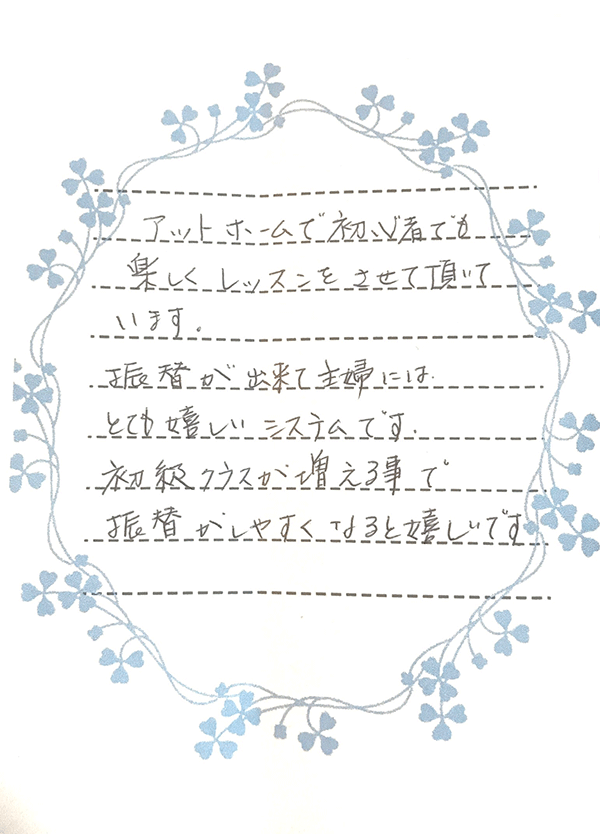 アットホームで初心者でも
楽しくレッスンをさせて頂いて
います。
振替が出来て主婦には
とても嬉しいシステムです.
初級クラスが増える事で
振替がしやすくなると嬉しいです